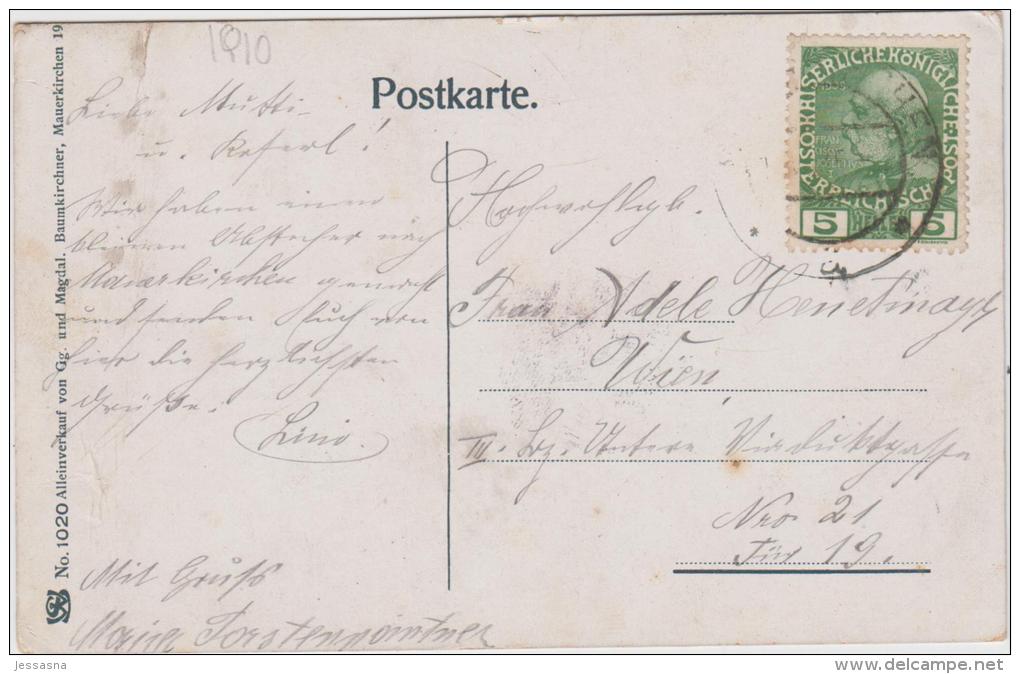 1910
Postkarte.
Liebe Mutti
u. Reserl!
Wir haben einen
kleinen Abstecher nach
Mauerkirchen gemacht
und senden Euch von
hier die herzlichsten
Grüße.
Lini.
Mit Gruss
Forstenpointner
Hochwohlgb.
Frau Adele
Wien
III. Bz. Untere Viaduktgasse
Nro. 21
Tür 19.
KAISERLICHE KÖNIGLICHE
ÖSTERREICHISCHE
POST
FRANZ
JOSEPH I
5 5
No. 1020 Alleinverkauf von Gg. und Magdal. Baumkirchner, Mauerkirchen 19
jessasna
www.delcampe.net